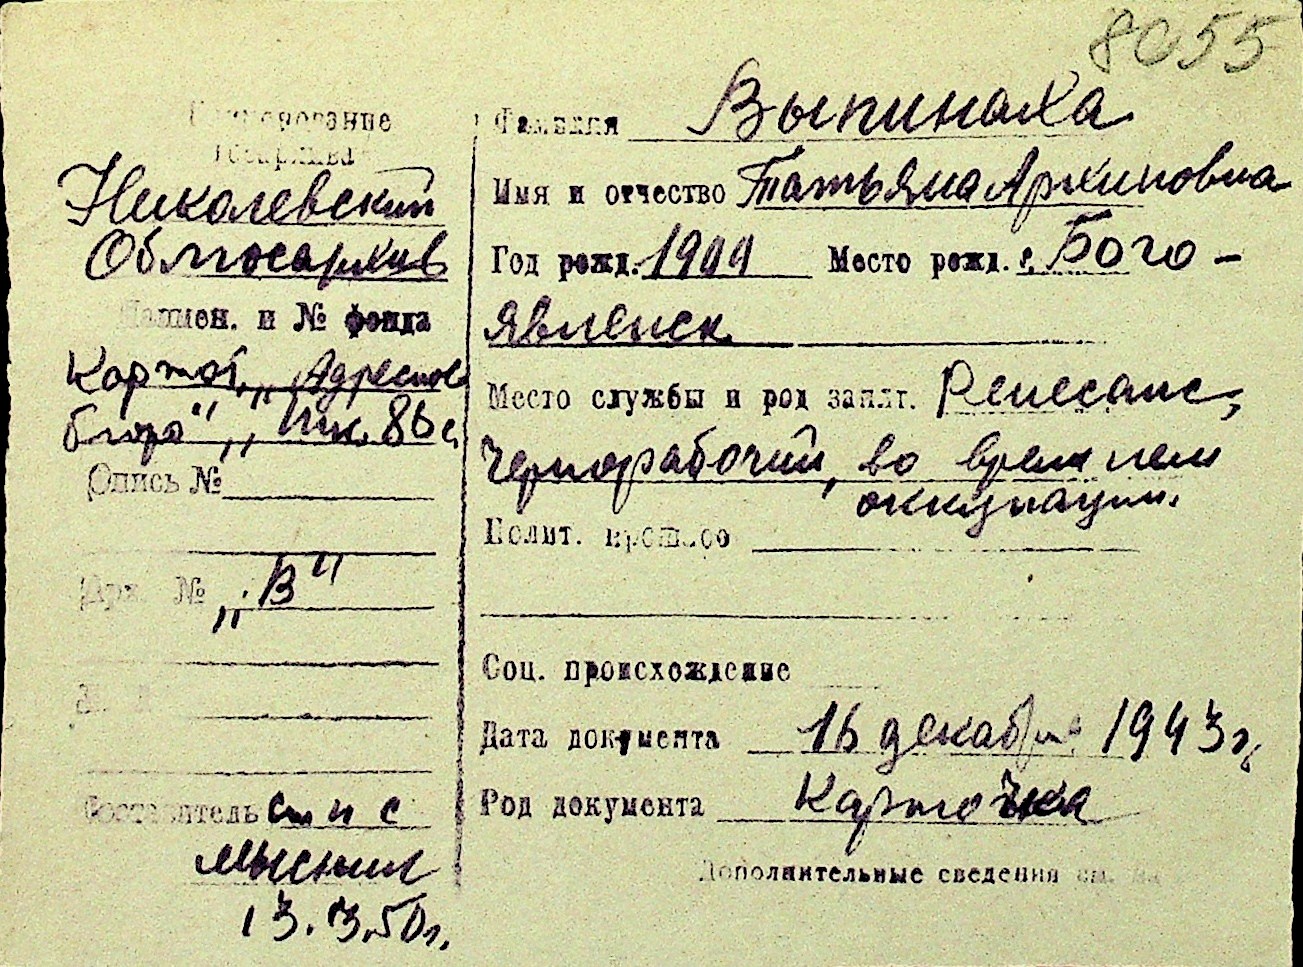 8055
Наименование
госархива
Николевский
Облгосархив
Наимен. и № фонда
Картот. „Адресное
бюро" „ 86 с.
Опись №
Арх. № „В"
Составитель ст н с
Мыснин
13.3.50г.
Фамилия Выпинаха
Имя и отчество Татьяна Архиповна
Год рожд. 1909 Место рожд. с. Бого-
явленск
Место службы и род занят. Ренесанс,
Чернорабочий, во время нем
оккупации.
Полит. прошлое
Соц. происхождение
Дата документа 16 декабря 1943 г.
Род документа Карточка
Дополнительные сведения см. на